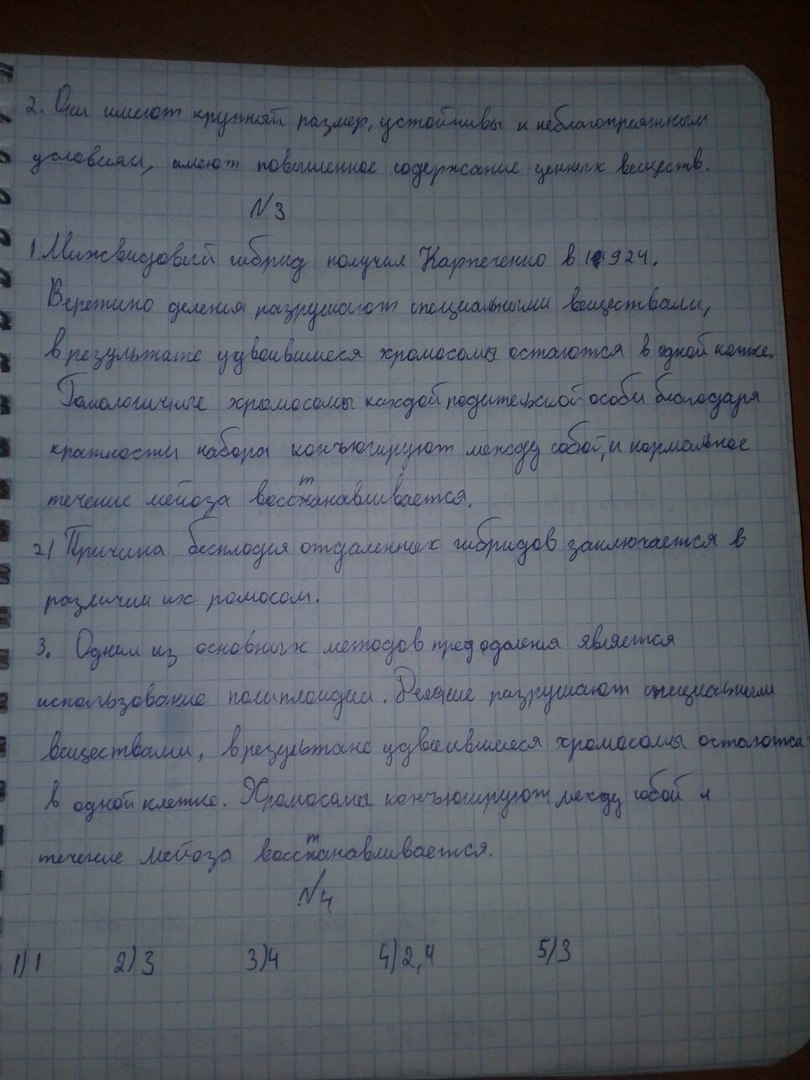 2. Они имеют крупный размер, устойчивы к неблагоприятным
условиям, имеют повышенное содержание ценных веществ.
№3
1. Межвидовый гибрид получил Карпеченко в 1924.
Веретино деления разрушают специальными веществами,
в результате удвоившиеся хромосомы остаются в одной клетке.
Гомологичные хромосомы каждой родительской особи благодаря
кратности набора конъюгируют между собой, и нормальное
течение мейоза восстанавливается.
2) Причина бесплодия отдаленных гибридов заключается в
различии их ромосом.
3. Одним из основных методов преодоления является
использование полиплоидии. Деление разрушают специальными
веществами, в результате удвоившиеся хромосомы остаются
в одной клетке. Хромосомы конъюгируют между собой и
течение мейоза восстанавливается.
№4
1) 1 2) 3 3) 4 4) 2,4 5) 3